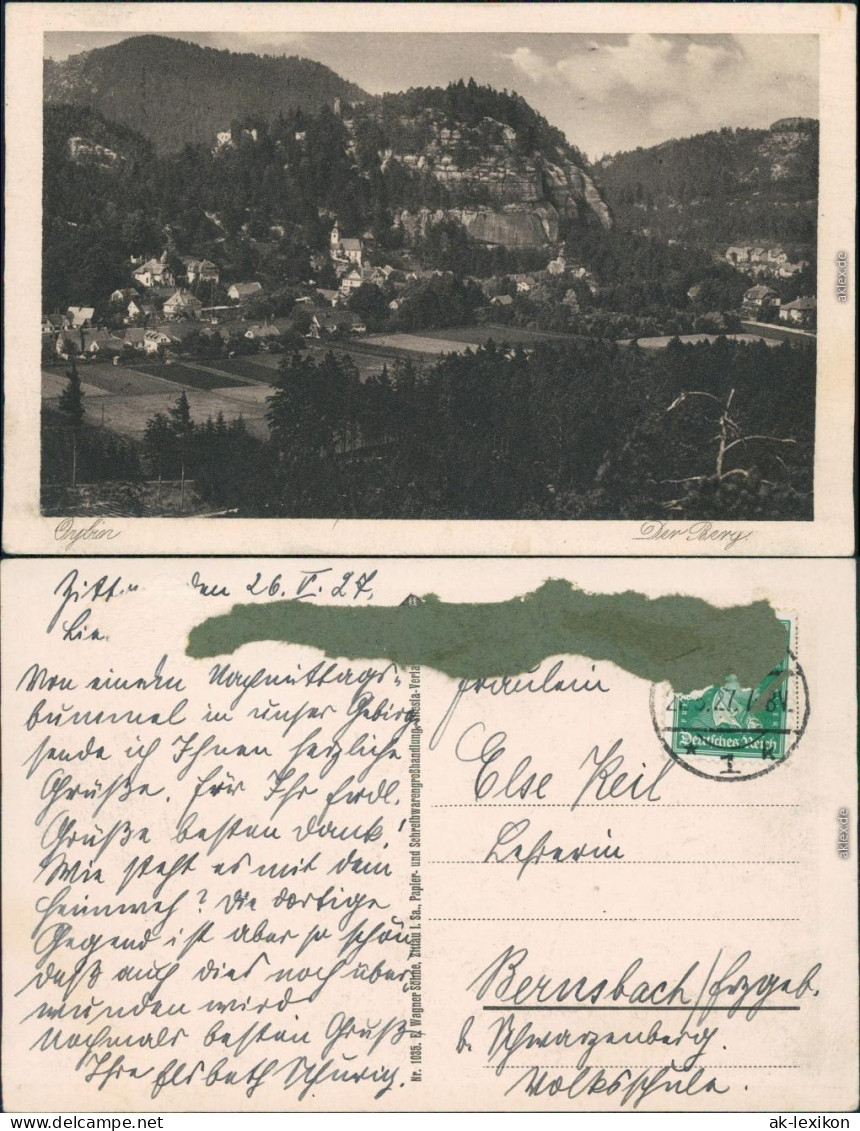 Oybin
Der Berg.
den 26. V. 27.
Von einem Nachmittags-
bummel in unser Gebirge
sende ich Ihnen herzliche
Grüße. Für Ihr frdl.
Grüße besten Dank!
Wie steht es mit dem
Heimweh? Die dortige
Gegend ist aber so schön,
daß auch dies noch über-
wunden wird.
Nochmals besten Gruß
Ihre Elsbeth Schurig.
Nr. 1035. E. Wagner Söhne, Zittau i. Sa., Papier- und Schreibwarengroßhandlung,
Deutsches Reich
1
Fräulein
Else Keil
Lehrerin
Bernsbach/Erzgeb.
b. Schwarzenberg.
Volksschule.
aklex.de
aklex.de
www.ak-ansichtskarten.de
ak-lexikon